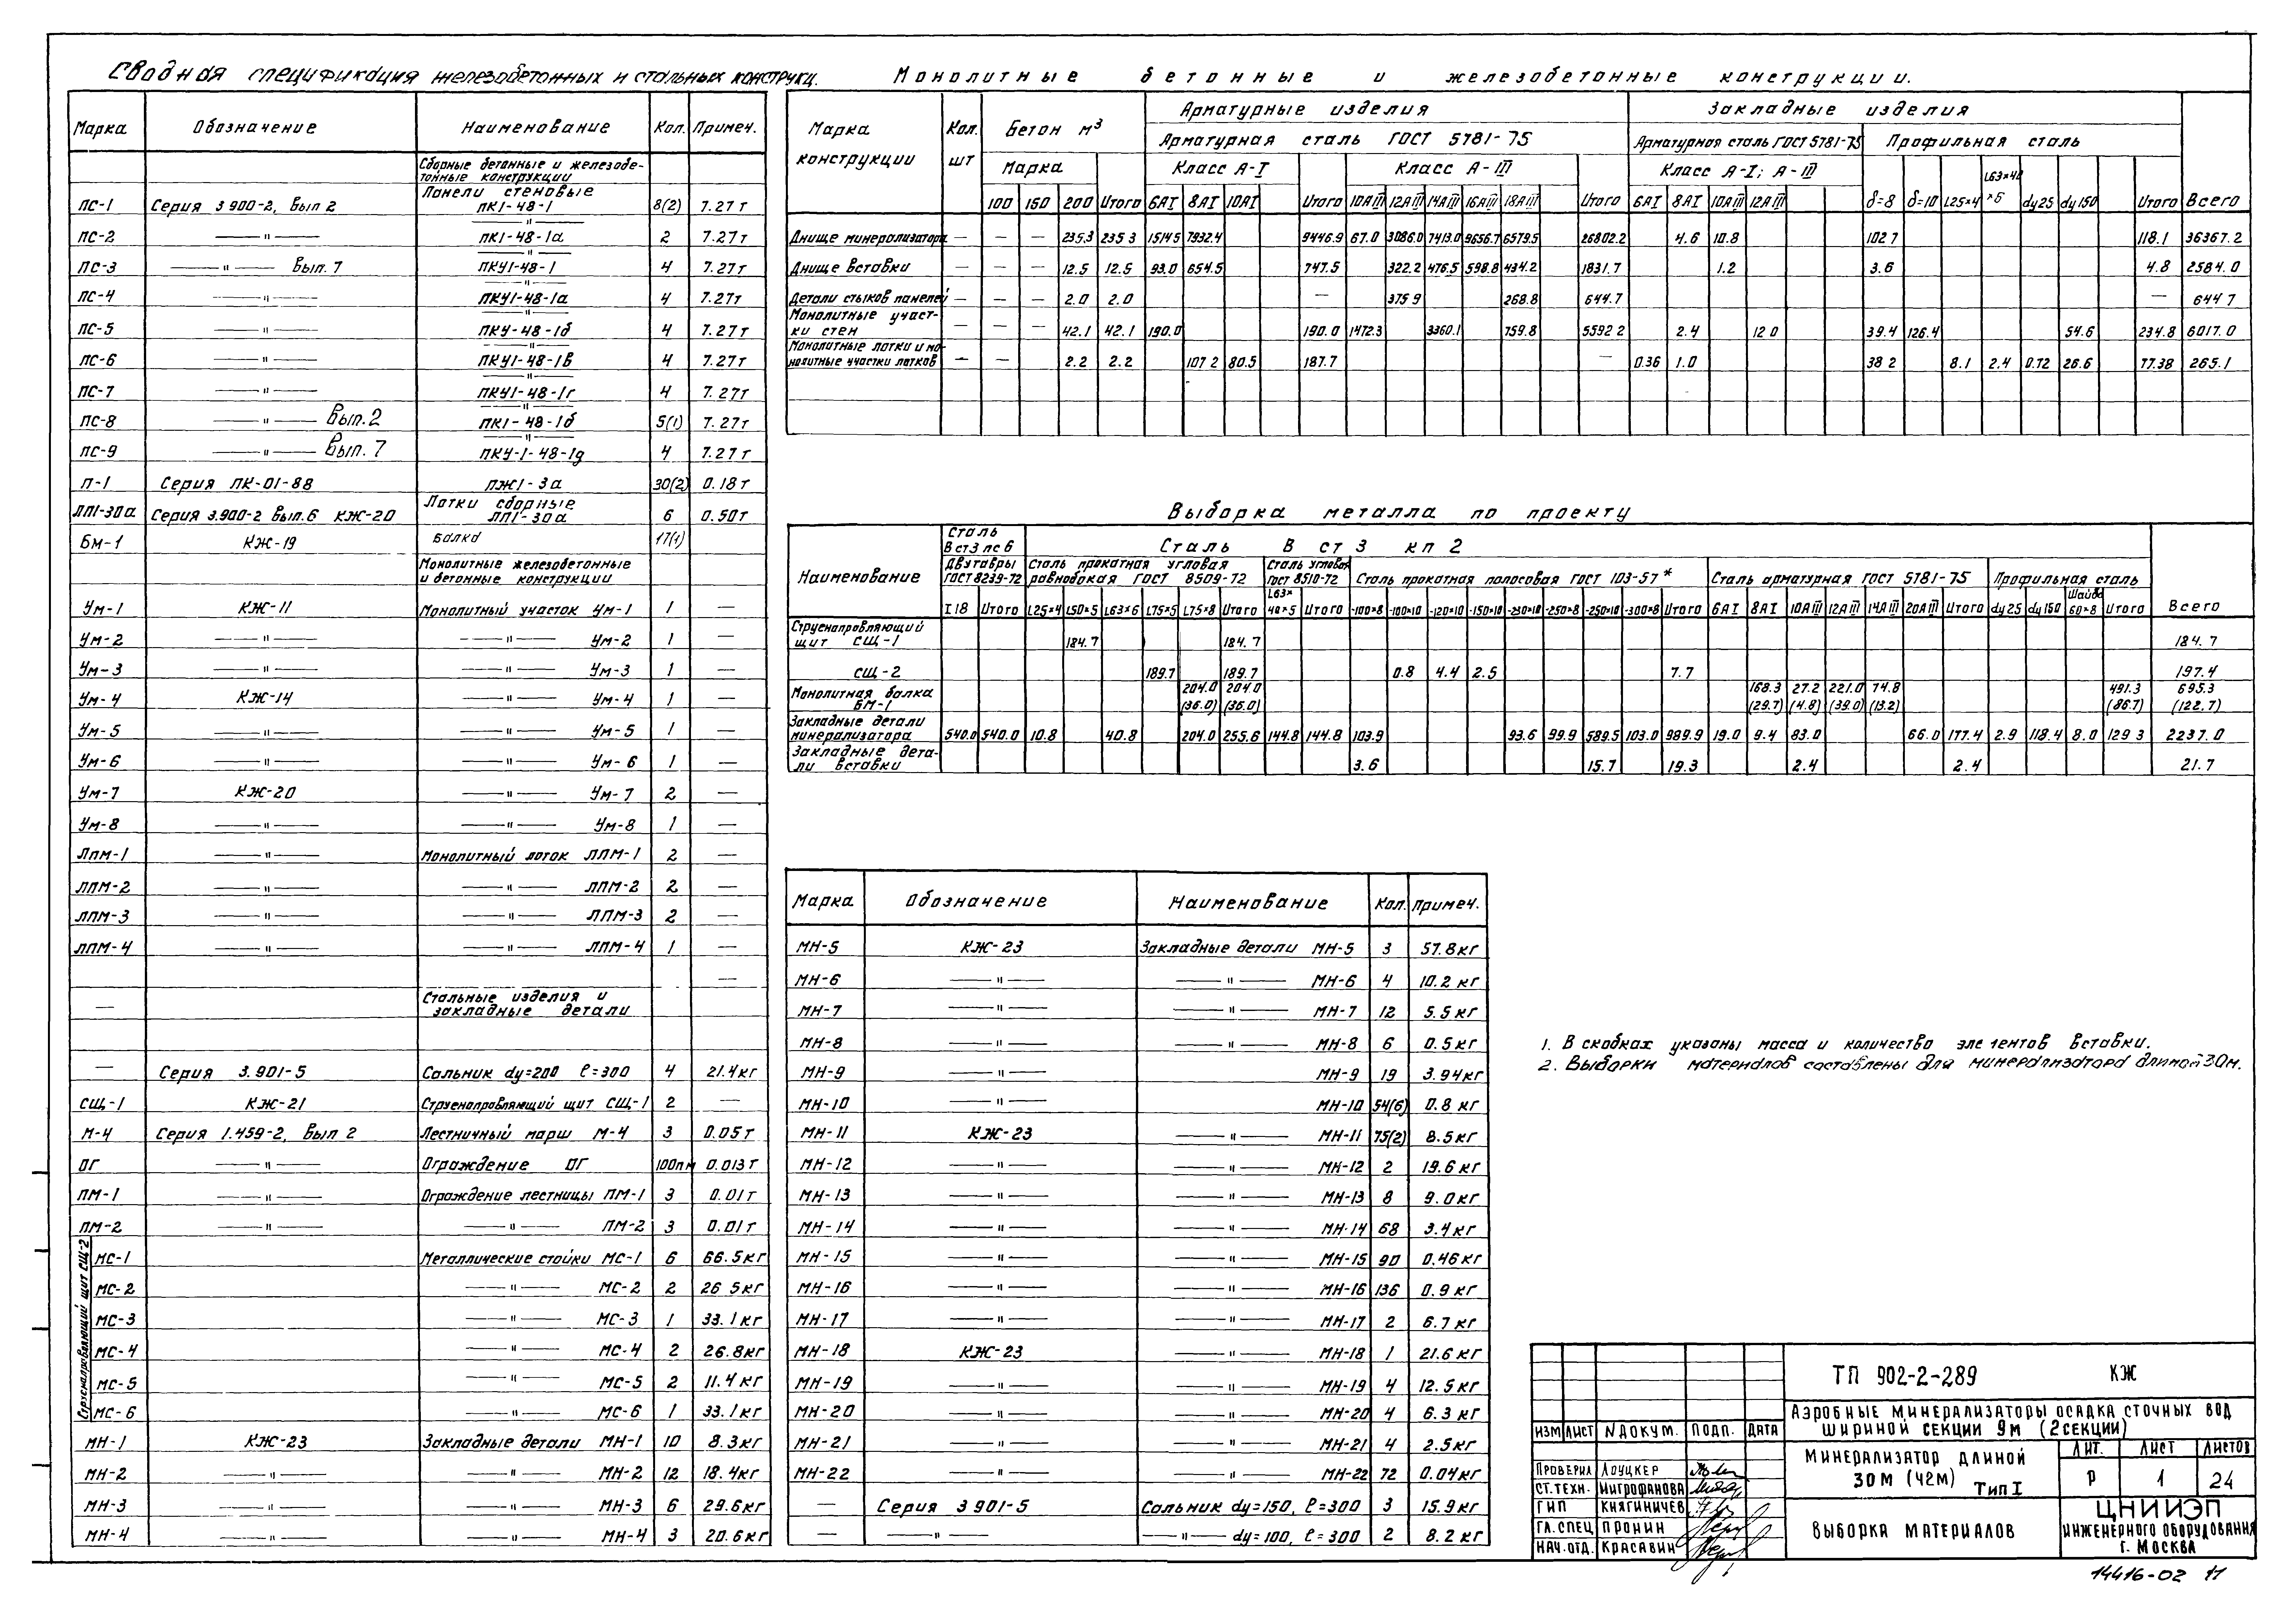 Сводная спецификация железобетонных и стальных конструкц.
Марка Обозначение Наименование Кол. Примеч.
Сборные бетонные и железобе-
тонные конструкции
Панели стеновые
ПС-1 Серия 3 900-2, Вып 2 ПК1-48-1 8(2) 7.27т
ПС-2 —"— ПК1-48-1а 2 7.27т
ПС-3 —"— Вып. 7 ПКУ1-48-1 4 7.27т
ПС-4 —"— ПКУ1-48-1а 4 7.27т
ПС-5 —"— ПКУ-48-1б 4 7.27т
ПС-6 —"— ПКУ1-48-1в 4 7.27т
ПС-7 —"— ПКУ1-48-1г 4 7.27т
ПС-8 —"— Вып.2 ПК1-48-1б 5(1) 7.27т
ПС-9 —"— Вып. 7 ПКУ-1-48-1д 4 7.27т
П-1 Серия ПК-01-88 ПЖ1-3а 30(2) 0.18т
Лотки сборные
ЛП1-30а Серия 3.900-2 Вып.6 КЖ-20 ЛП1-30а 6 0.50т
Бм-1 КЖ-19 Балка 17(1)
Монолитные железобетонные
и бетонные конструкции
Ум-1 КЖ-11 Монолитный участок Ум-1 1 —
Ум-2 —"— —"— Ум-2 1 —
Ум-3 —"— —"— Ум-3 1 —
Ум-4 КЖ-14 —"— Ум-4 1 —
Ум-5 —"— —"— Ум-5 1 —
Ум-6 —"— —"— Ум-6 1 —
Ум-7 КЖ-20 —"— Ум-7 2 —
Ум-8 —"— —"— Ум-8 1 —
Лпм-1 —"— Монолитный лоток ЛПМ-1 2 —
ЛПМ-2 —"— —"— ЛПМ-2 2 —
ЛПМ-3 —"— —"— ЛПМ-3 2 —
ЛПМ-4 —"— —"— ЛПМ-4 1 —
—
— Стальные изделия и
закладные детали
— Серия 3.901-5 Сальник dу=200 ℓ=300 4 21.4кг
СЩ-1 КЖ-21 Струенаправляющий щит СЩ-1 2 —
М-4 Серия 1.459-2, Вып 2 Лестничный марш М-4 3 0.05т
ОГ —"— Ограждение ОГ 100пм 0.013т
ПМ-1 —"— Ограждение лестницы ПМ-1 3 0.01т
ПМ-2 —"— —"— ПМ-2 3 0.01т
Струенаправляющий щит СЩ-2
МС-1 Металлические стойки МС-1 6 66.5кг
МС-2 —"— МС-2 2 26 5кг
МС-3 —"— МС-3 1 33.1кг
МС-4 —"— МС-4 2 26.8кг
МС-5 —"— МС-5 2 11.4кг
МС-6 —"— МС-6 1 33.1кг
МН-1 КЖ-23 Закладные детали МН-1 10 8.3кг
МН-2 —"— —"— МН-2 12 18.4кг
МН-3 —"— —"— МН-3 6 29.6кг
МН-4 —"— —"— МН-4 3 20.6кг
Монолитные бетонные и железобетонные конструкции.
Марка конструкции Кол. шт Бетон м³ Арматурные изделия Закладные изделия Всего
Арматурная сталь ГОСТ 5781-75 Арматурная сталь ГОСТ 5781-75 Профильная сталь
Марка Класс А-I Класс А-III Класс А-I; А-III
100 150 200 Итого 6АI 8АI 10АI Итого 10АIII 12АIII 14АIII 16АIII 18АIII Итого 6АI 8АI 10АIII 12АIII δ=8 δ=10 L25×4 L63×40×5 dу25 dу150 Итого
Днище минерализатора — — — 235.3 235 3 1514.5 7932.4 9446.9 67.0 3086.0 7413.0 9656.7 6579.5 26802.2 4.6 10.8 102 7 118.1 36367.2
Днище вставки — — — 12.5 12.5 93.0 654.5 747.5 322.2 476.5 598.8 434.2 1831.7 1.2 3.6 4.8 2584.0
Детали стыков панелей — — — 2.0 2.0 — 375 9 268.8 644.7 — 644 7
Монолитные участ-
ки стен — — — 42.1 42.1 190.0 190.0 1472.3 3360.1 759.8 5592 2 2.4 12 0 39.4 126.4 54.6 234.8 6017.0
Монолитные лотки и мо-
нолитные участки лотков — — 2.2 2.2 107 2 80.5 187.7 — 0.36 1.0 38 2 8.1 2.4 0.72 26.6 77.38 265.1
Выборка металла по проекту
Наименование Сталь В ст3 пс 6 Сталь В ст 3 кп 2 Всего
Двутавры ГОСТ 8239-72 Сталь прокатная угловая равнобокая ГОСТ 8509-72 Сталь угловая ГОСТ 8510-72 Сталь прокатная полосовая ГОСТ 103-57* Сталь арматурная ГОСТ 5781-75 Профильная сталь
I 18 Итого L25×4 L50×5 L63×6 L75×5 L75×8 Итого L63×40×5 Итого -100×8 -100×10 -120×10 -150×10 -230×10 -250×8 -250×10 -300×8 Итого 6АI 8АI 10АIII 12АIII 14АIII 20АIII Итого dу25 dу150 Шайба 60×8 Итого
Струенаправляющий
щит СЩ-1 184.7 184.7 184.7
СЩ-2 189.7 189.7 0.8 4.4 2.5 7.7 197.4
Монолитная балка 204.0 204.0 168.3 27.2 221.0 74.8 491.3 695.3
БМ-1 (36.0) (36.0) (29.7) (4.8) (39.0) (13.2) (86.7) (122.7)
Закладные детали
минерализатора 540.0 540.0 10.8 40.8 204.0 255.6 144.8 144.8 103.9 93.6 99.9 589.5 103.0 989.9 19.0 9.4 83.0 66.0 177.4 2.9 118.4 8.0 129 3 2237.0
Закладные дета-
ли вставки 3.6 15.7 19.3 2.4 2.4 21.7
Марка Обозначение Наименование Кол. Примеч.
МН-5 КЖ-23 Закладные детали МН-5 3 57.8кг
МН-6 —"— —"— МН-6 4 10.2 кг
МН-7 —"— —"— МН-7 12 5.5 кг
МН-8 —"— —"— МН-8 6 0.5 кг
МН-9 —"— МН-9 19 3.94кг
МН-10 —"— МН-10 54(6) 0.8 кг
МН-11 КЖ-23 —"— МН-11 75(2) 8.5кг
МН-12 —"— —"— МН-12 2 19.6 кг
МН-13 —"— —"— МН-13 8 9.0кг
МН-14 —"— —"— МН-14 68 3.4кг
МН-15 —"— —"— МН-15 90 0.46кг
МН-16 —"— —"— МН-16 136 0.9 кг
МН-17 —"— —"— МН-17 2 6.7 кг
МН-18 КЖ-23 —"— МН-18 1 21.6 кг
МН-19 —"— —"— МН-19 4 12.5 кг
МН-20 —"— —"— МН-20 4 6.3 кг
МН-21 —"— —"— МН-21 4 2.5кг
МН-22 —"— —"— МН-22 72 0.04кг
— Серия 3 901-5 Сальник dу=150, ℓ=300 3 15.9кг
— —"— —"— dу=100, ℓ=300 2 8.2 кг
1. В скобках указаны масса и количество эле ентов вставки.
2. Выборки материалов составлены для минерализатора длиной 30м.
ТП 902-2-289 КЖ
Аэробные минерализаторы осадка сточных вод
шириной секции 9м (2секции)
Изм Лист N докум. Подп. Дата
Минерализатор длиной
30м (42м) Тип I
Лит. Лист Листов
Р 1 24
Проверил Лоуцкер
Ст.техн. Митрофанова
ГИП Княгиничев
Гл.спец Пронин
Нач.отд. Красавин
Выборка материалов
ЦНИИЭП
инженерного оборудования
г. Москва
14416-02 11